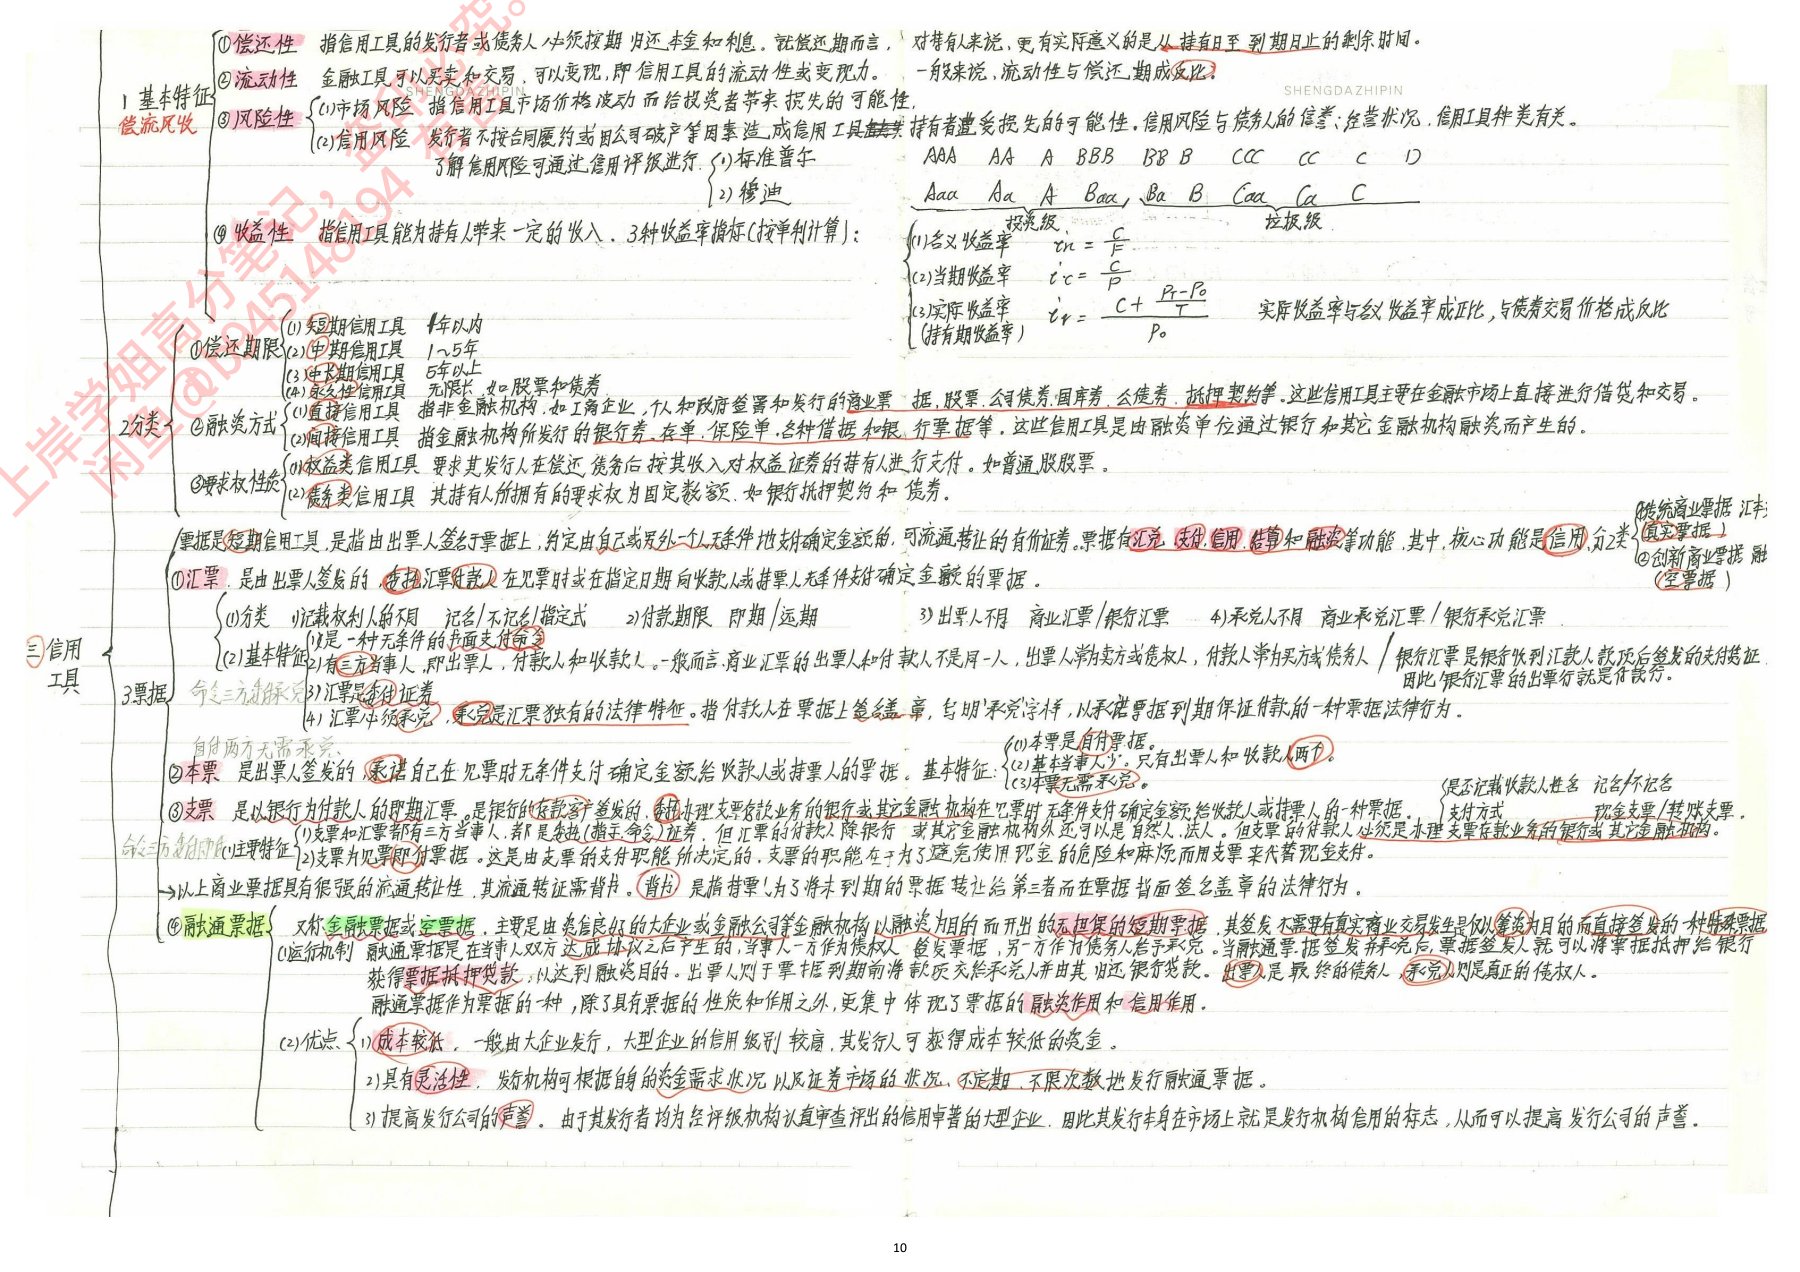 三信用工具
1 基本特征
偿流风收
①偿还性 指信用工具的发行者或债务人必须按期归还本金和利息。就偿还期而言，对持有人来说，更有实际意义的是从持有日至到期日止的剩余时间。
②流动性 金融工具可以买卖和交易，可以变现，即信用工具的流动性或变现力。一般来说，流动性与偿还期成反比。
SHENGDAZHIPIN
SHENGDAZHIPIN
③风险性
(1)市场风险 指信用工具市场价格波动而给投资者带来损失的可能性，
(2)信用风险 发行者不按合同履约或因公司破产等因素造成信用工具持有者遭受损失的可能性。信用风险与债务人的信誉、经营状况、信用工具种类有关。
了解信用风险可通过信用评级进行
1)标准普尔 AAA AA A BBB BB B CCC CC C D
2)穆迪 Aaa Aa A Baa, Ba B Caa Ca C
投资级 垃圾级
④收益性 指信用工具能为持有人带来一定的收入。3种收益率指标(按单利计算)：
(1)名义收益率 in = C/F
(2)当期收益率 ic = C/P
(3)实际收益率 ir = (C + (PT-P0)/T)/P0 实际收益率与名义收益率成正比，与债券交易价格成反比
(持有期收益率)
2分类
①偿还期限
(1)短期信用工具 1年以内
(2)中期信用工具 1～5年
(3)中长期信用工具 5年以上
(4)永久性信用工具 无限长，如股票和债券
②融资方式
(1)直接信用工具 指非金融机构，如工商企业，个人和政府签署和发行的商业票据，股票，公司债券，国库券，公债券，抵押契约等。这些信用工具主要在金融市场上直接进行借贷和交易。
(2)间接信用工具 指金融机构所发行的银行券、存单、保险单、各种借据和银行票据等。这些信用工具是由融资单位通过银行和其它金融机构融资而产生的。
③要求权性质
(1)权益类信用工具 要求其发行人在偿还债务后按其收入对权益证券的持有人进行支付。如普通股股票。
(2)债务类信用工具 其持有人所拥有的要求权为固定数额，如银行抵押契约和债券。
3票据
票据是短期信用工具，是指由出票人签名于票据上，约定由自己或另外一个人无条件地支付确定金额的，可流通转让的有价证券。票据有汇兑、支付、信用、结算和融资等功能，其中，核心功能是信用，分2类
①传统商业票据 汇本
(真实票据)
②创新商业票据 融
(空票据)
①汇票，是由出票人签发的，委托汇票付款人在见票时或在指定日期向收款人或持票人无条件支付确定金额的票据。
(1)分类 1)记载权利人的不同 记名/不记名/指定式 2)付款期限 即期/远期 3)出票人不同 商业汇票/银行汇票 4)承兑人不同 商业承兑汇票/银行承兑汇票
(2)基本特征
1)是一种无条件的书面支付命令
2)有三方当事人，即出票人，付款人和收款人。一般而言，商业汇票的出票人和付款人不是同一人，出票人常为卖方或债权人，付款人常为买方或债务人/银行汇票是银行收到汇款人款项后签发的支付凭证，
因此银行汇票的出票行就是付款行。
3)汇票是委付证券
4)汇票必须承兑，承兑是汇票独有的法律特征。指付款人在票据上签名盖章，写明'承兑'字样，以承诺票据到期保证付款的一种票据法律行为。
自付两方无需承兑、
②本票 是出票人签发的，承诺自己在见票时无条件支付确定金额给收款人或持票人的票据。基本特征：
(1)本票是自付票据。
(2)基本当事人少。只有出票人和收款人两个。
(3)本票无需承兑。
③支票 是以银行为付款人的即期汇票。是银行的存款客户签发的，委托办理支票存款业务的银行或其它金融机构在见票时无条件支付确定金额给收款人或持票人的一种票据。
是否记载收款人姓名 记名/不记名
支付方式 现金支票/转账支票。
(1)主要特征
1)支票和汇票都有三方当事人，都是委托(指示、命令)证券，但汇票的付款人除银行或其它金融机构外还可以是自然人、法人。但支票的付款人必须是办理支票存款业务的银行或其它金融机构。
2)支票为见票即付票据。这是由支票的支付职能所决定的，支票的职能在于为了避免使用现金的危险和麻烦而用支票来代替现金支付。
→以上商业票据具有很强的流通转让性，其流通转让需背书。背书 是指持票人为了将未到期的票据转让给第三者而在票据背面签名盖章的法律行为。
④融通票据 又称金融票据或空票据，主要是由资信良好的大企业或金融公司等金融机构以融资为目的而开出的无担保的短期票据，其签发不需要有真实商业交易发生是仅以筹资为目的而直接签发的一种特殊票据
(1)运行机制 融通票据是在当事人双方达成协议之后产生的，当事人一方作为债权人签发票据，另一方作为债务人给予承兑。当融通票据签发并承兑后，票据签发人就可以将票据抵押给银行
获得票据抵押贷款，以达到融资目的。出票人则于票据到期前将款项交给承兑人并由其归还银行贷款。出票人是最终的债务人，承兑人则是真正的债权人。
融通票据作为票据的一种，除了具有票据的性质和作用之外，更集中体现了票据的融资作用和信用作用。
(2)优点
1)成本较低，一般由大企业发行，大型企业的信用级别较高，其发行人可获得成本较低的资金。
2)具有灵活性，发行机构可根据自身的资金需求状况以及证券市场的状况、不定期、不限次数地发行融通票据。
3)提高发行公司的声誉。由于其发行者均为经评级机构认真审查评出的信用卓著的大型企业，因此其发行本身在市场上就是发行机构信用的标志，从而可以提高发行公司的声誉。
上岸学姐高分笔记，盗印必究。
闲鱼@b945148194 有售
10